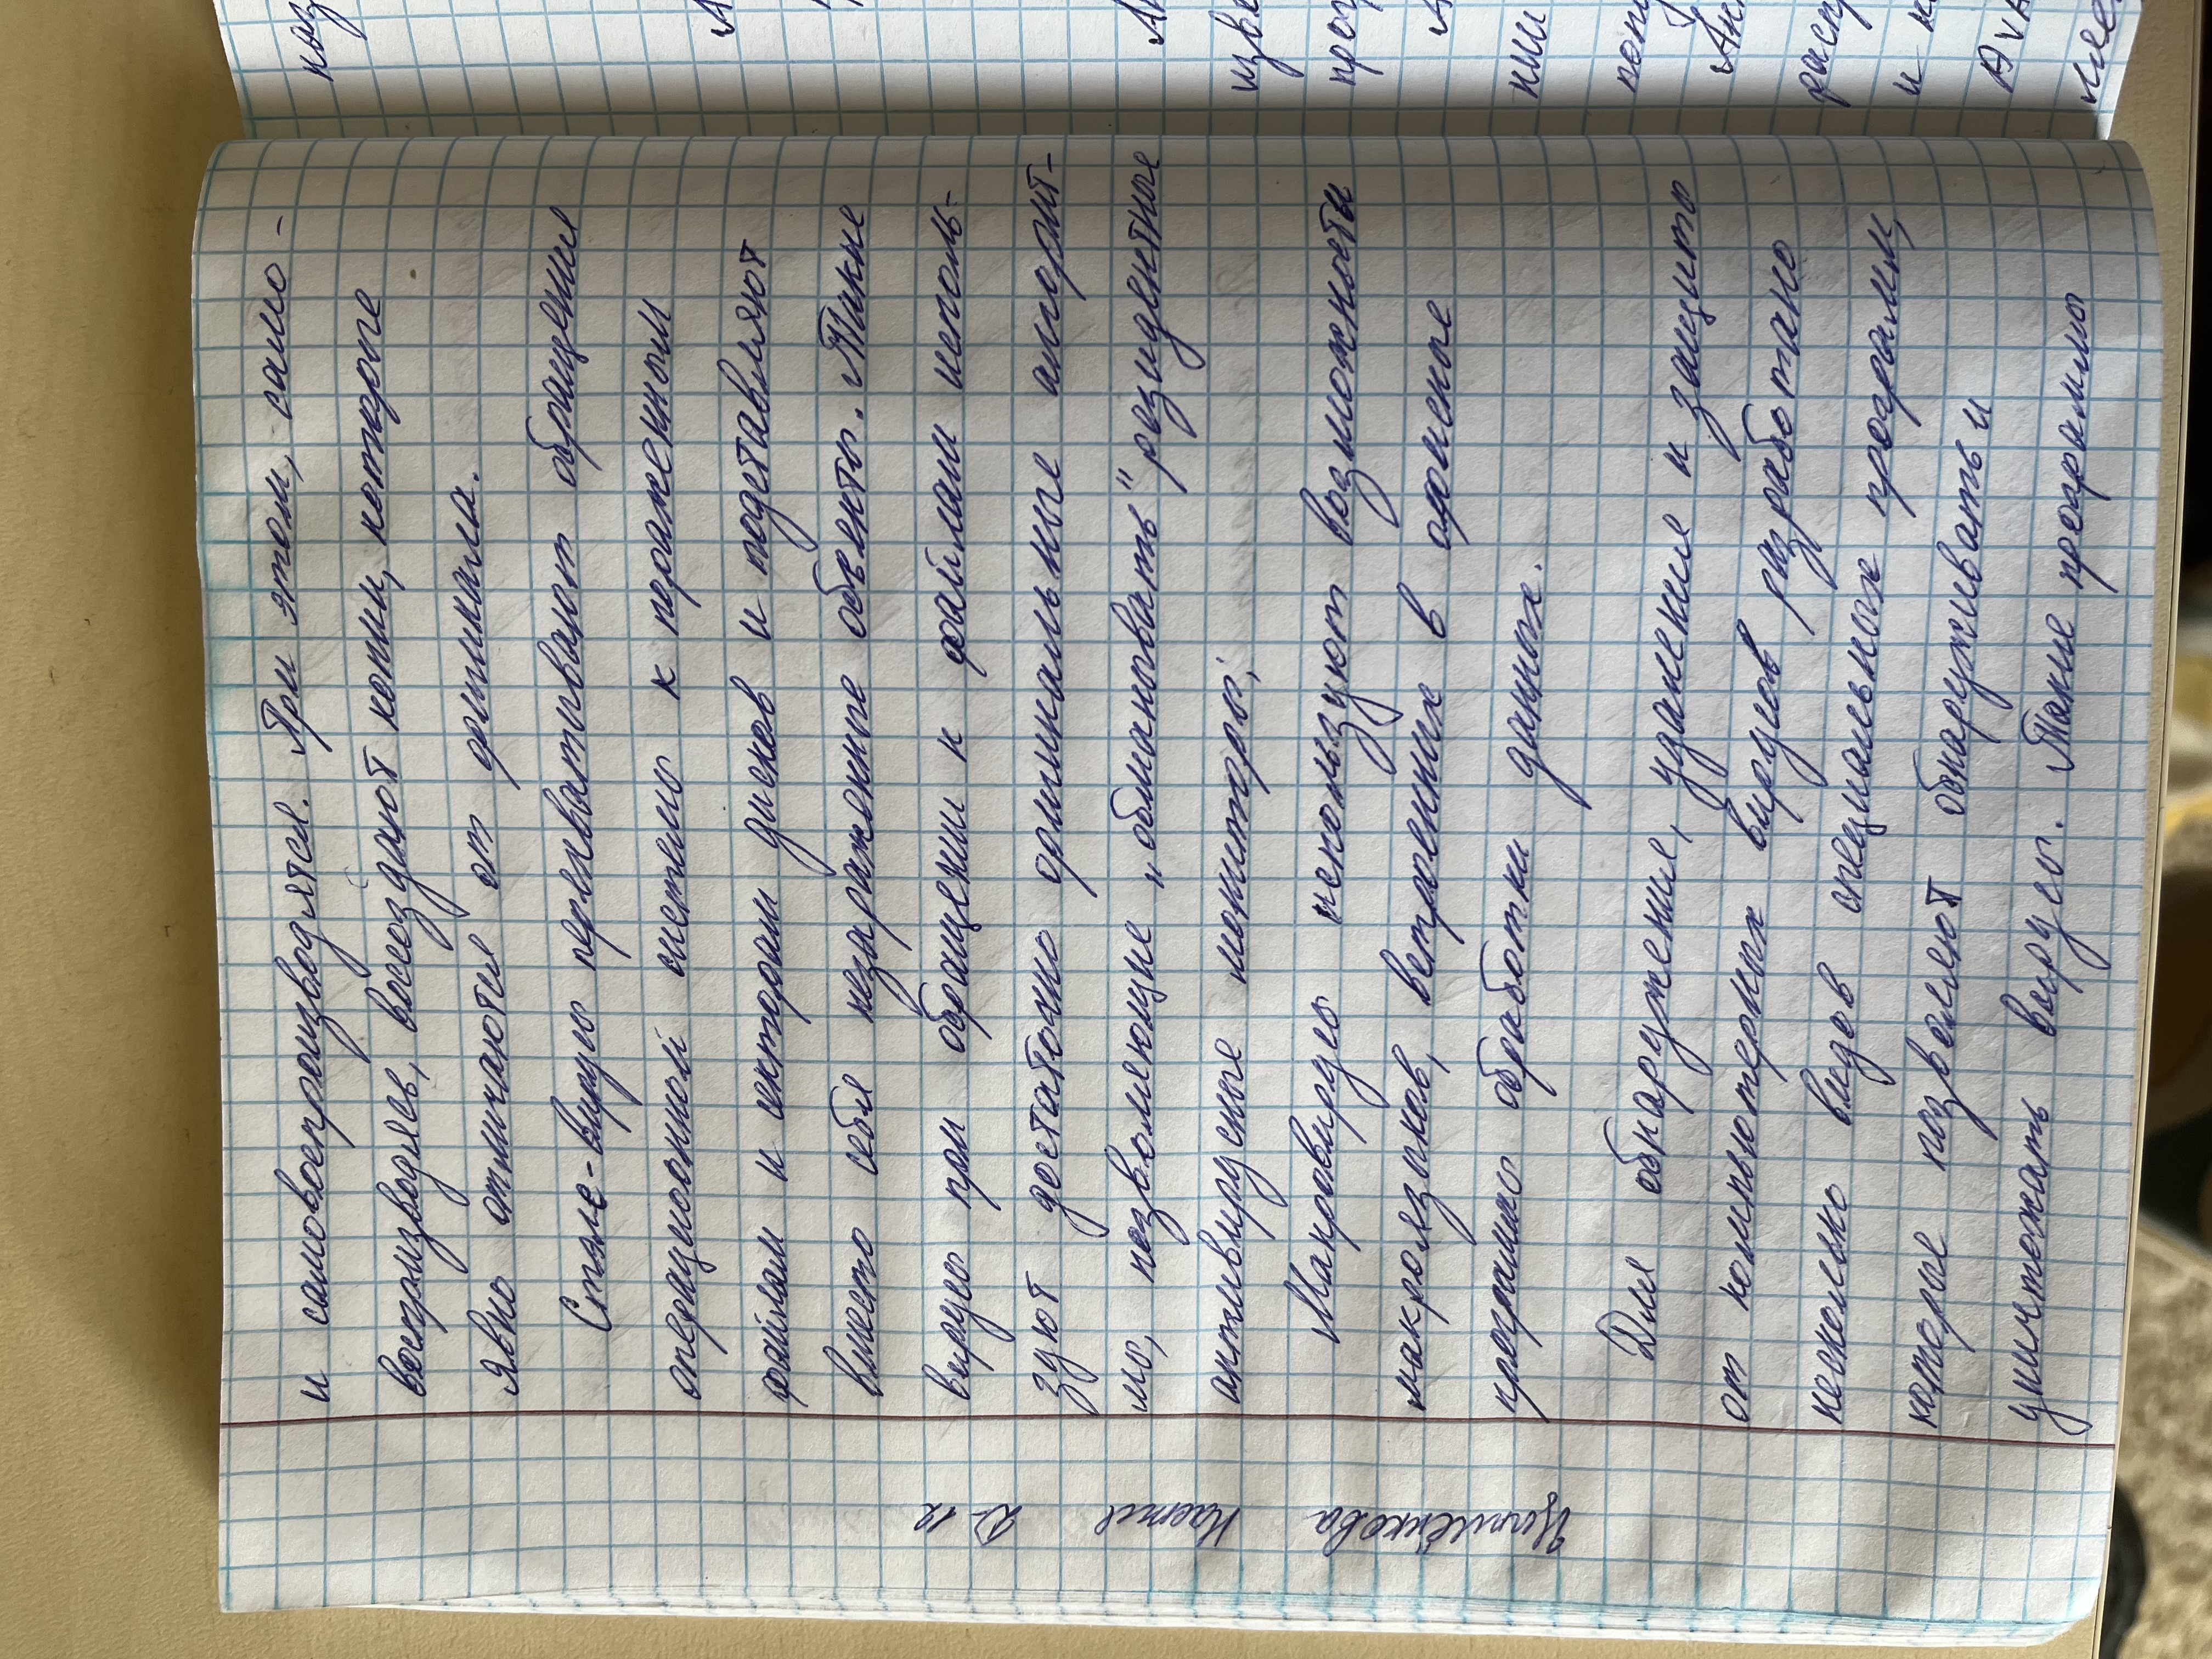 и самовоспроизводятся. При этом, само-
воспроизводясь, воссоздают копии, которые
явно отличаются от оригинала.
Стэлс-вирусы перехватывают обращение
операционной системы к пораженным
файлам и секторам дисков и подставляют
вместо себя незараженные объекты. Такие
вирусы при обращении к файлам исполь-
зуют достаточно оригинальные алгорит-
мы, позволяющие "обманывать" резидентные
антивирусные мониторы;
Макровирусы используют возможности
макроязыков, встроенных в офисные
программы обработки данных.
Для обнаружение, удаление и защиты
от компьютерных вирусов разработано
несколько видов специальных программ,
которые позволяют обнаруживать и
уничтожать вирусы. Такие программы
Настя Д-12